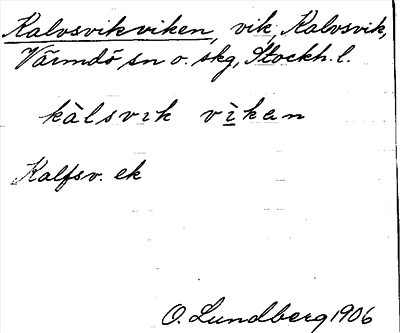 Kalvsvikviken, vik, Kalvsvik,
Värmdö sn o. skg, Stockh. l.
kàlsvik vìkan
Kalfsv. ek
O. Lundberg 1906